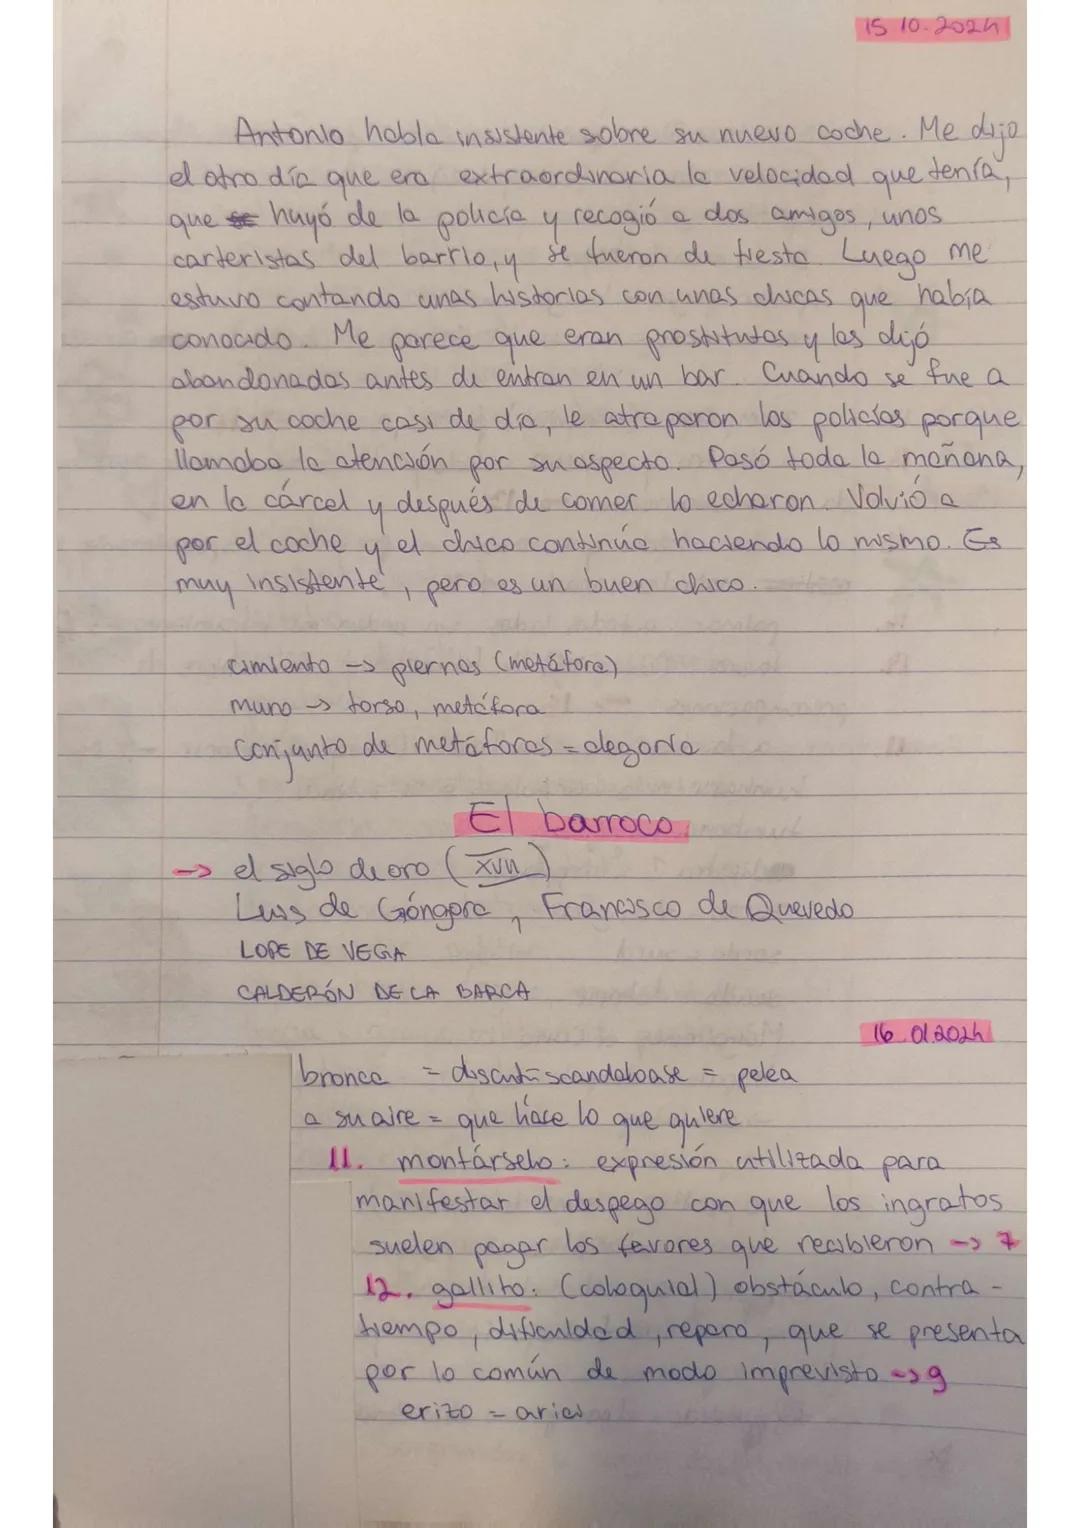 15 10. 2024
Antonio habla insistente sobre su nuevo coche. Me dijo
el otro día que era extraordinaria la velocidad que tenía,
que huyó de la policía y recogió a dos amigos, unos
carteristas del barrio, y se fueron de fiesta. Luego me
estuvo contando unas historias con unas chicas que había
conocido. Me parece que eran prostitutas y las dijó
abandonadas antes de entran en un bar. Cuando se fue a
por su coche casi de día, le atraparon los policías porque
llamaba la atención por su aspecto. Pasó toda la mañana,
en la cárcel y después de comer lo echaron. Volvió a
por el coche y el chico continúa haciendo lo mismo. Es
muy insistente, pero es un buen chico.
cimiento → piernas (metáfora)
muro → torso, metáfora
conjunto de metáforas = alegoría
El barroco
→ el siglo de oro (XVII)
Luis de Góngora, Francisco de Quevedo
LOPE DE VEGA
CALDERÓN DE LA BARCA
16.01.2024
bronca = = pelea
a su aire = que hace lo que quiere
11. montárselo: expresión utilizada para
manifestar el despego con que los ingratos
suelen pagar los favores que recibieron → 7
12. gallito: (coloquial) obstáculo, contra-
tiempo, dificuldad, reparo, que se presenta
por lo común de modo imprevisto → 9
erizo =